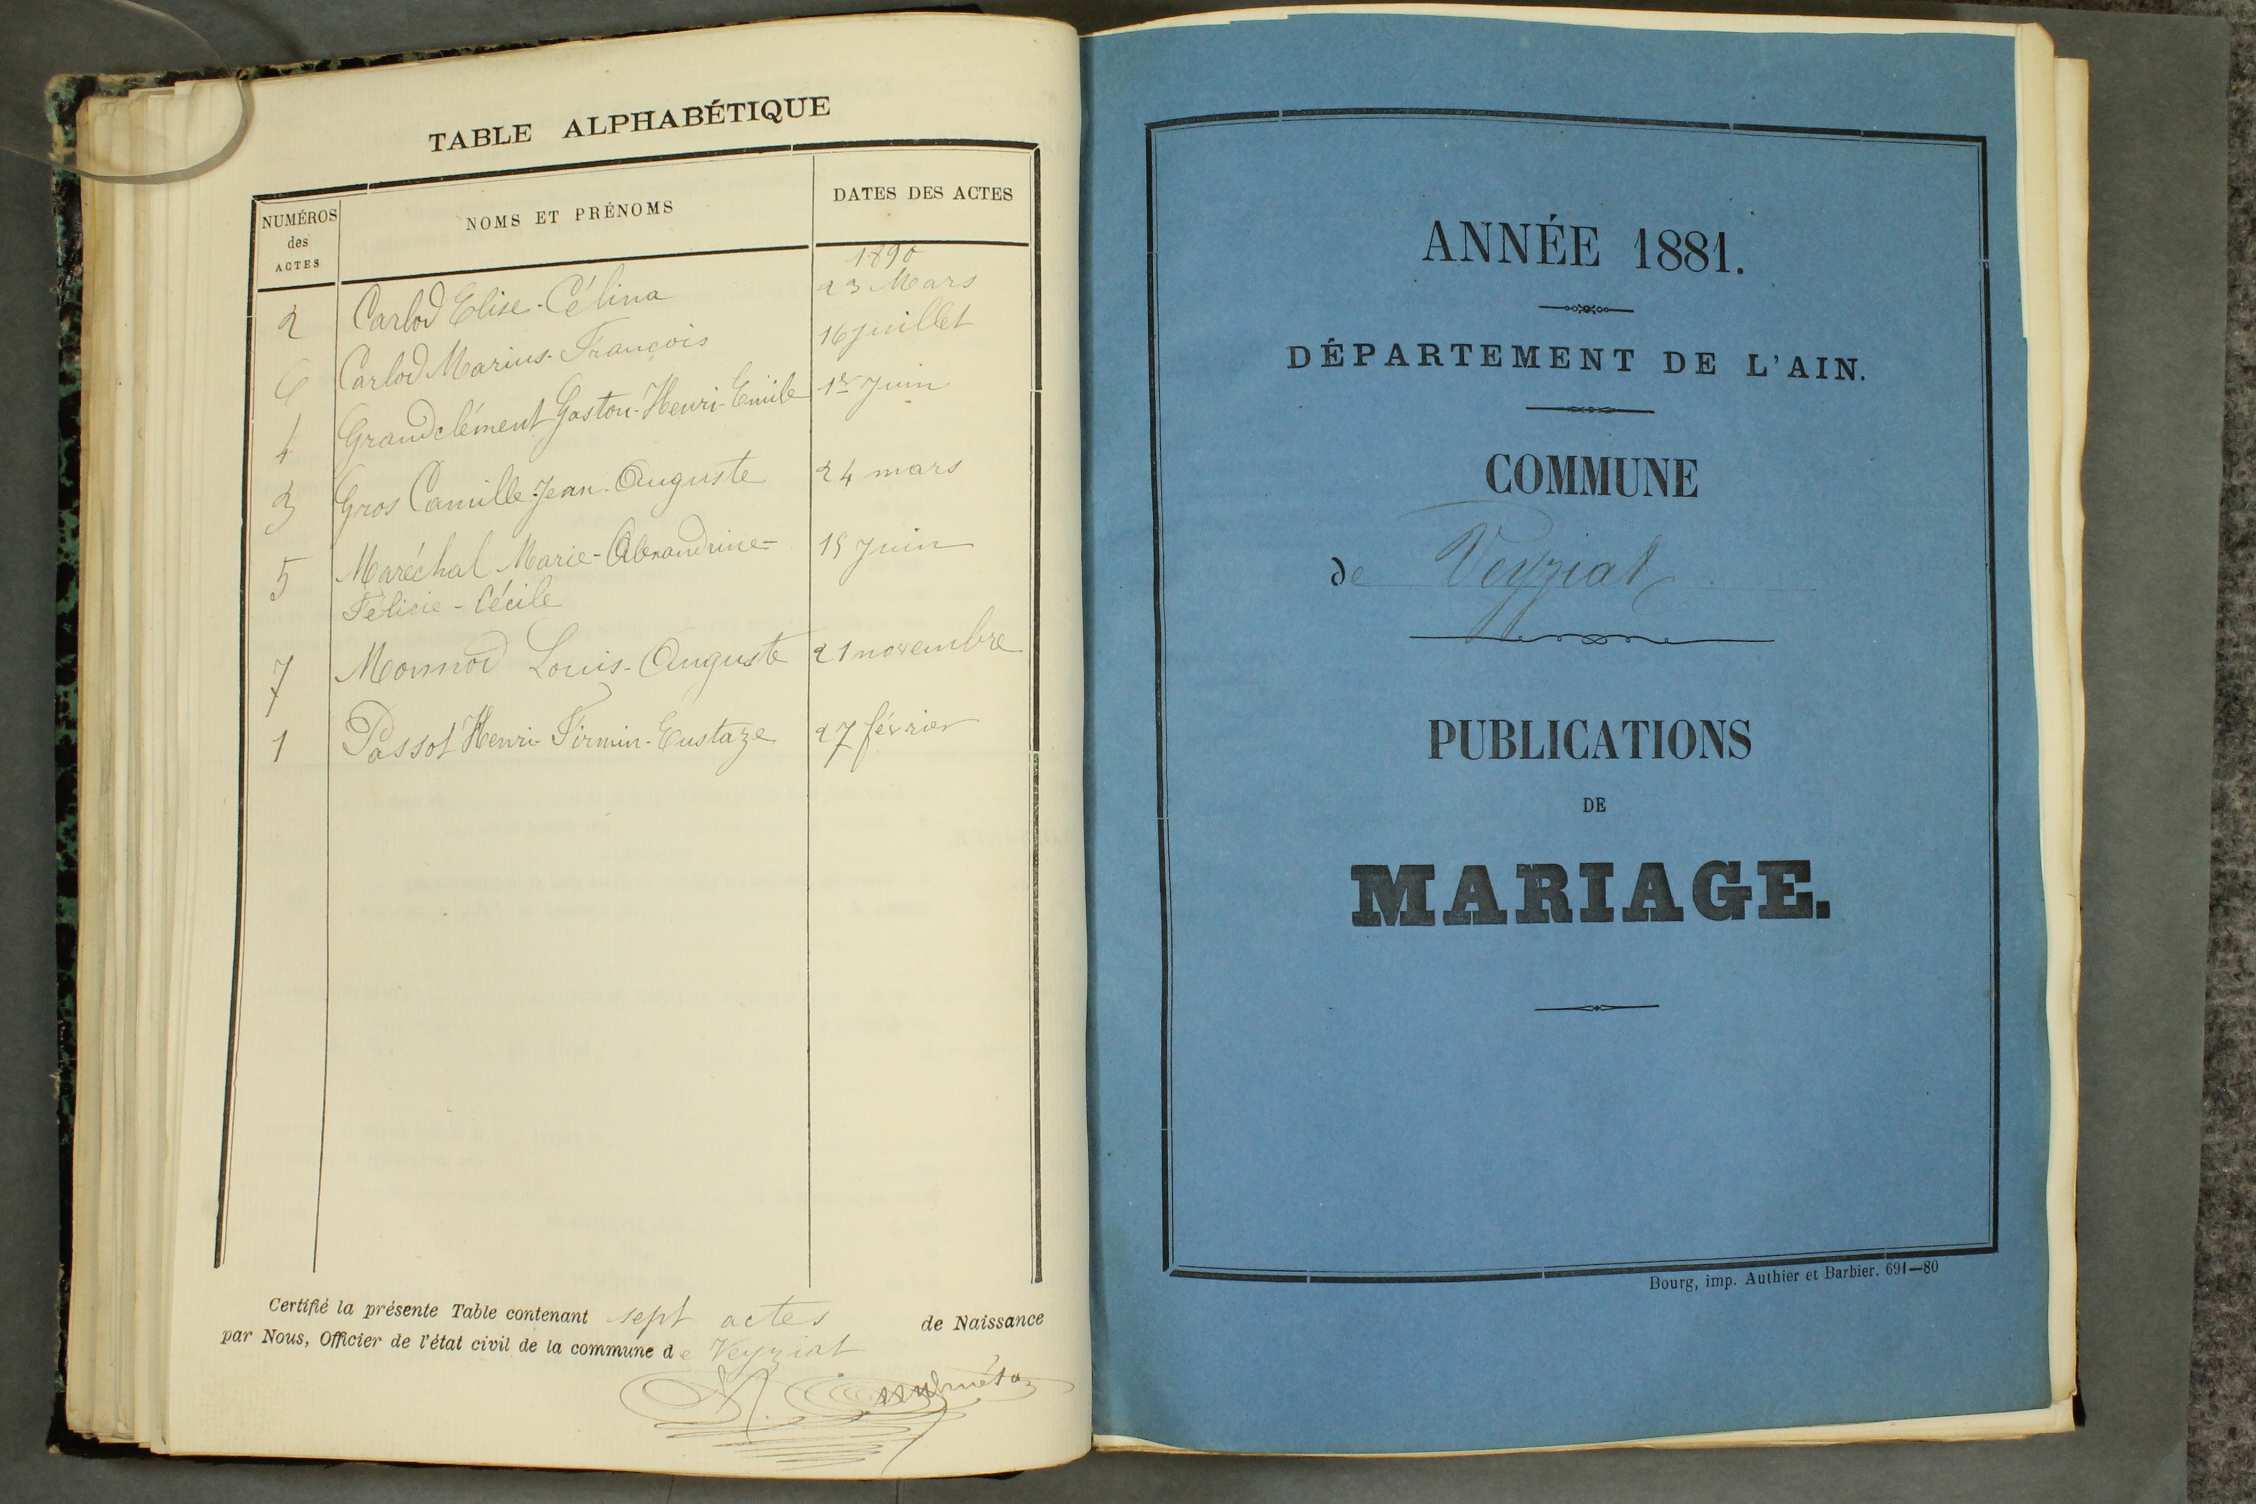 TABLE ALPHABÉTIQUE
NUMÉROS des ACTES NOMS ET PRÉNOMS DATES DES ACTES
1890
2 Carlod Elise-Célina 23 Mars
6 Carlod Marius-François 16 Juillet
4 Grandclément Gaston-Henri-Emile 1er Juin
3 Gros Camille-Jean-Auguste 24 mars
5 Maréchal Marie-Alexandrine- 15 Juin
Félicie-Cécile
7 Monnod Louis-Auguste 21 novembre
1 Passot Henri-Firmin-Eustaze 27 février
Certifié la présente Table contenant sept actes de Naissance
par Nous, Officier de l'état civil de la commune de Veyziat
ANNÉE 1881.
DÉPARTEMENT DE L'AIN.
COMMUNE
de Veyziat
PUBLICATIONS
DE
MARIAGE.
Bourg, imp. Authier et Barbier. 691—80